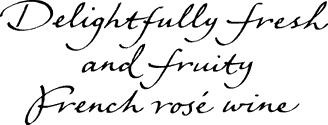 Delightfully fresh
and fruity
French rosé wine